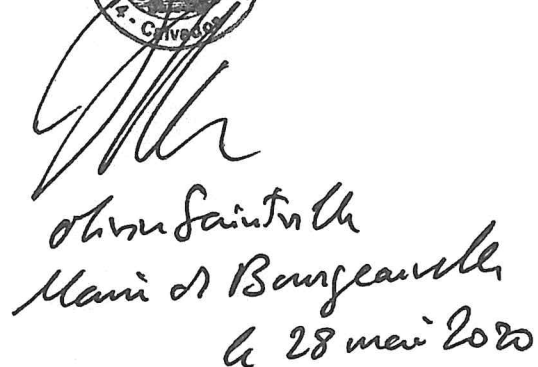 14 - Calvados
Olivier Saintville
Maire de Bourgeauville
le 28 mai 2020